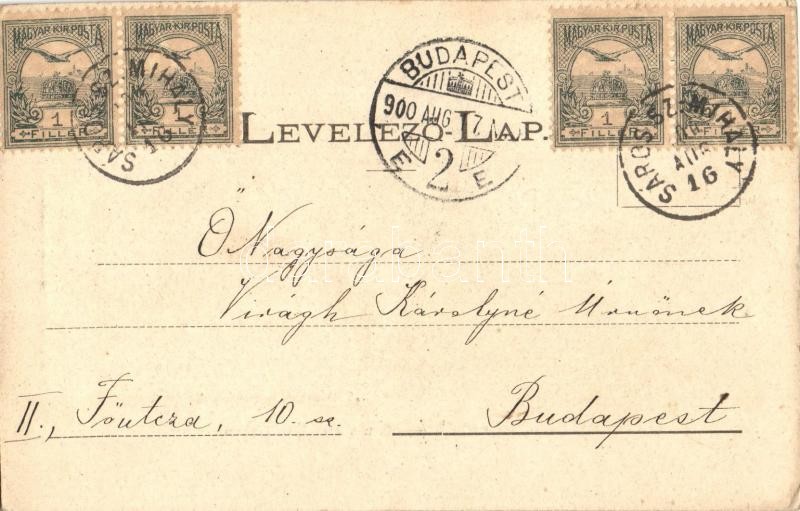 MAGYAR·KIR·POSTA MAGYAR·KIR·POSTA MAGYAR·KIR·POSTA MAGYAR·KIR·POSTA
1 1 1 1
FILLÉR FILLÉR
SÁROS SZ. MIHÁLY
BUDAPEST
900 AUG 17
E 2 E
SÁROS-SZ-MIHÁLY
AUG
16
LEVELEZŐ-LAP.
Ő Nagysága
Virágh Károlyné Úrnőnek
II., Főutcza, 10 sz.
Budapest